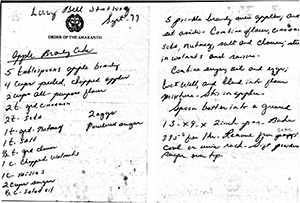 Lucy Bell
Sept. 77
ORDER OF THE AMARANTH
Apple Brandy Cake
5 tablespoons apple brandy
4 cups peeled, chopped apples
2 cups all-purpose flour
2t. gr cinnamon
2t. soda
2 eggs
1t. gr. nutmeg
Powdered sugar
1t. salt
½t. gr. cloves
1 c. chopped walnuts
1c raisins
2 cups sugar
½ c. salad oil
5 sprinkle brandy over apples, and
set aside. Combine flour, cinnamon
soda, nutmeg, salt and cloves; stir
in walnuts and raisins.
Combine sugar, oil and eggs;
beat well, and blend into flour
mixture. Stir in apples.
Spoon batter into a greased
13 x 9 x 2 inch pan. Bake
for 1 hr. Remove from
cool on wire rack. powdered
sugar over top.